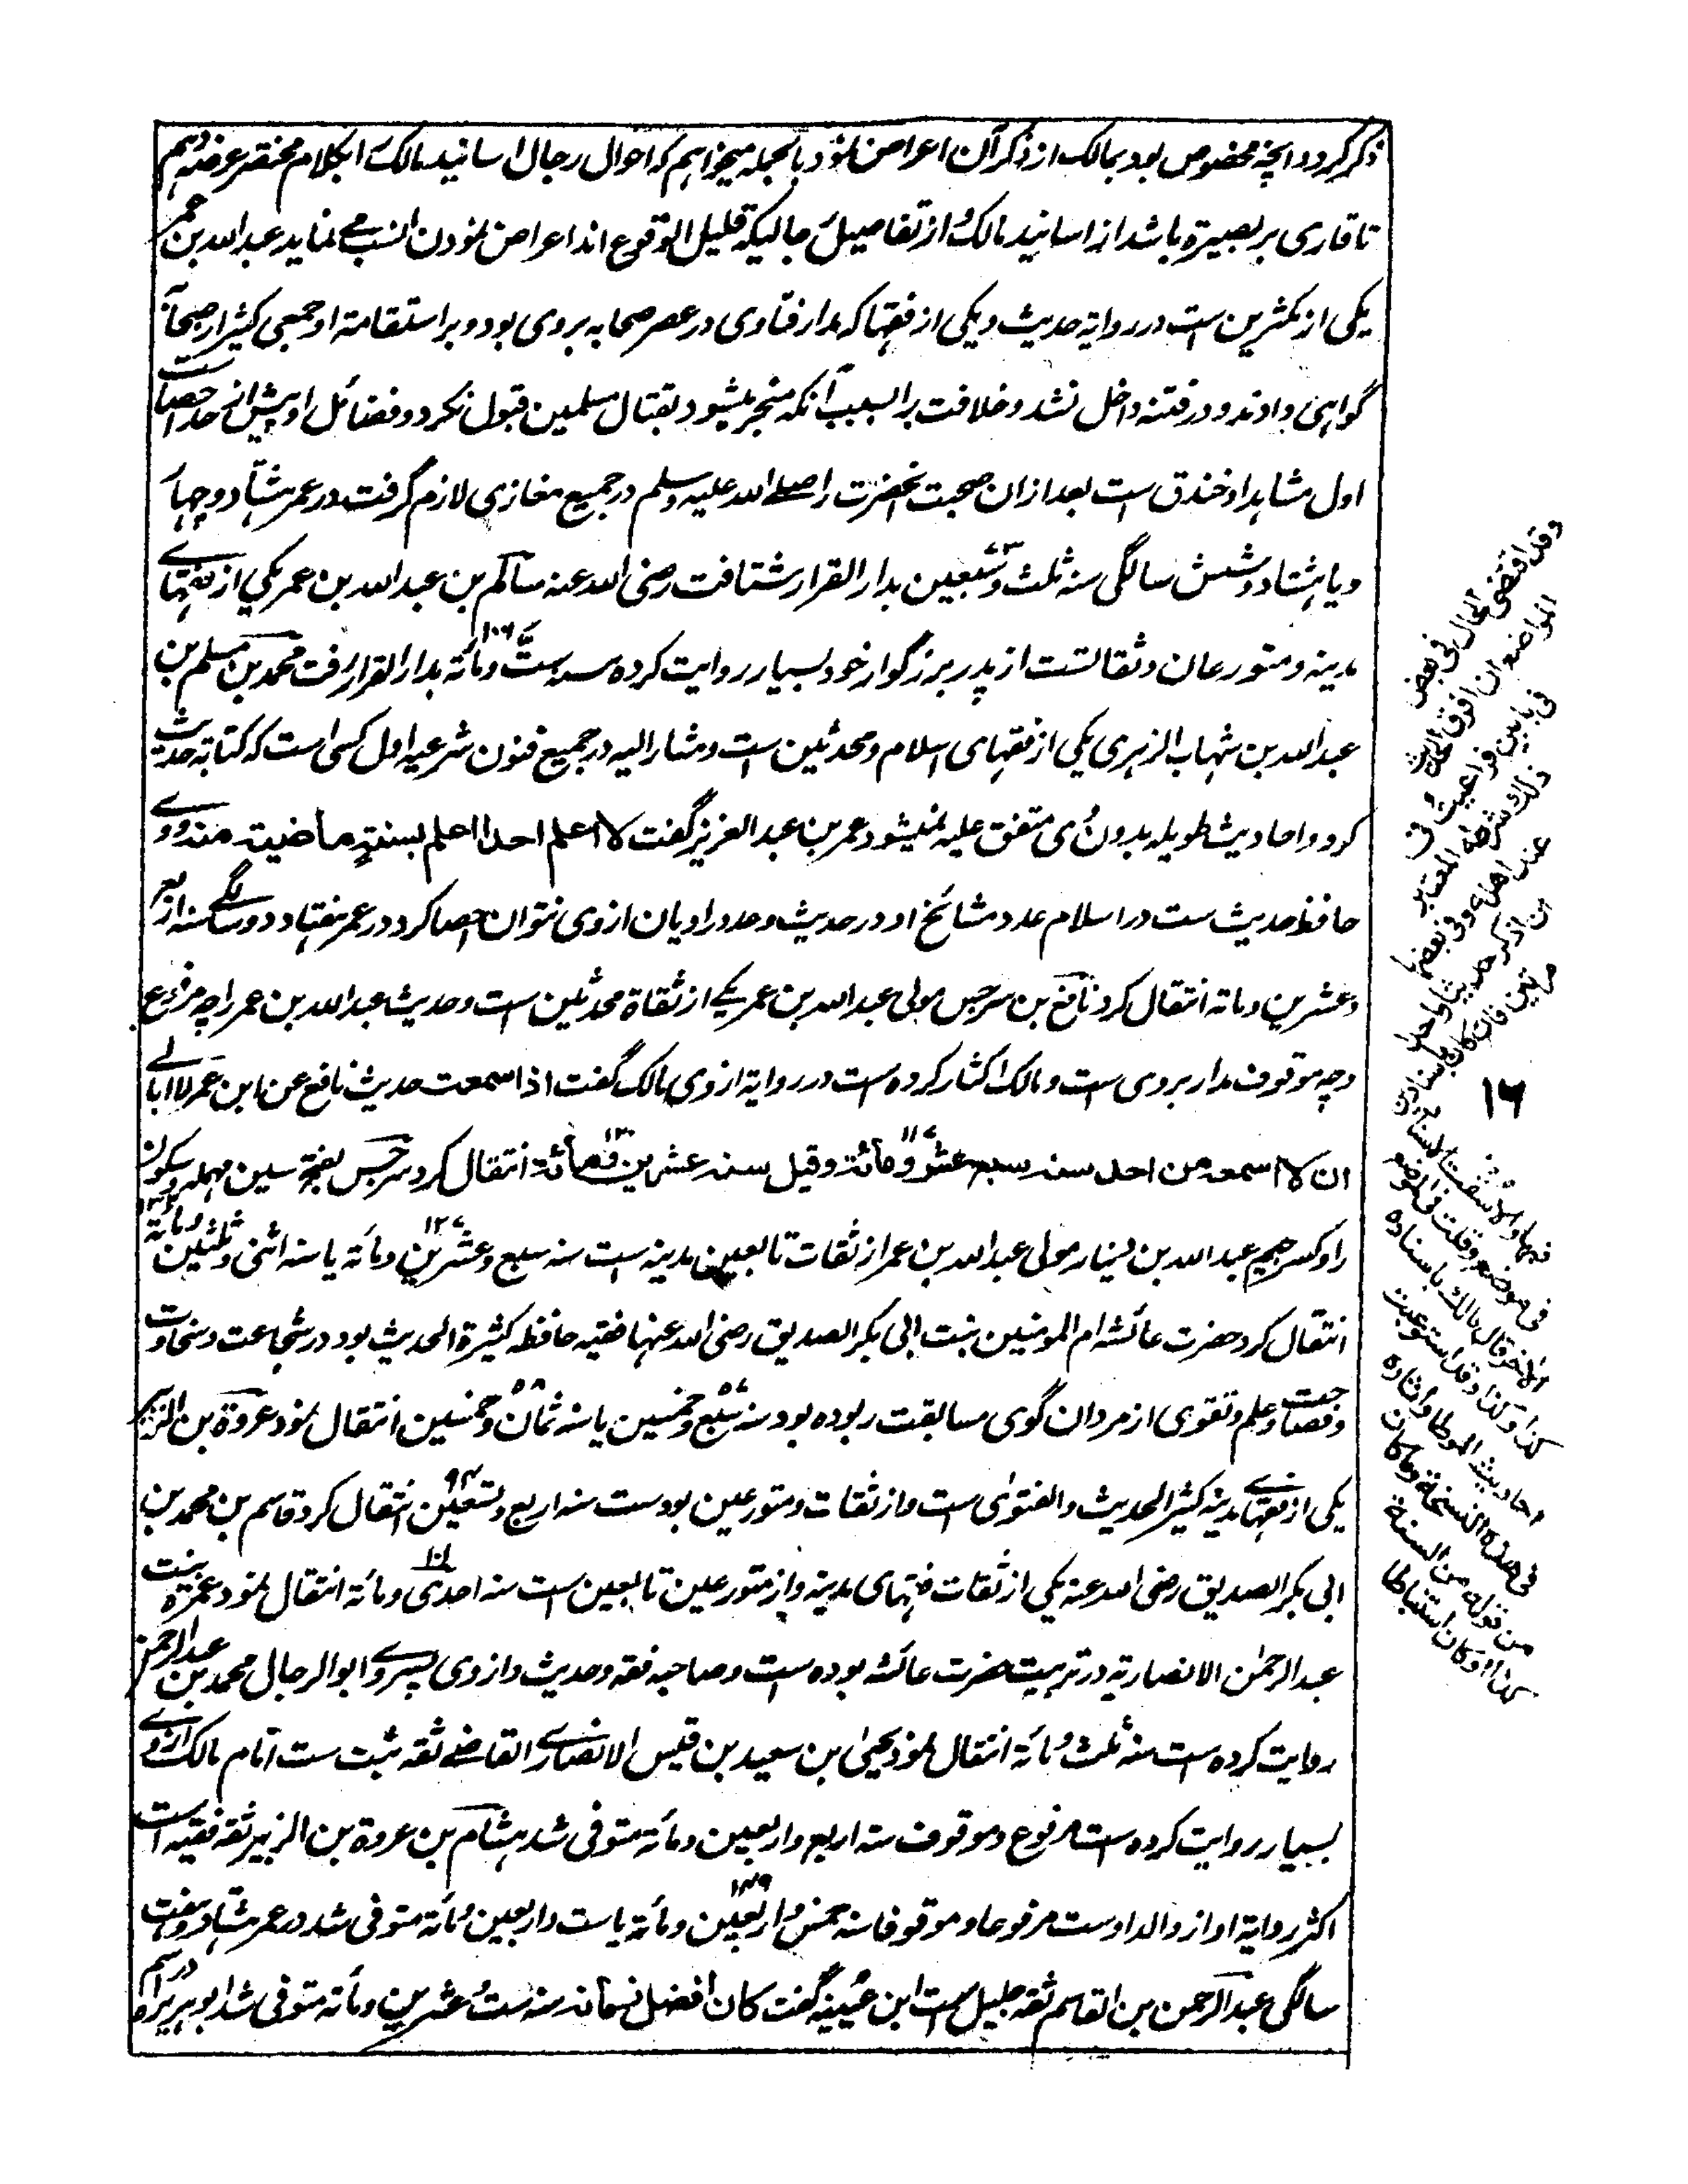 ذکر کرد و آنچه مخصوص بود بمالک از ذکر آن اعراض نمود بالجمله میخواهم که احوال رجال اسانید مالک را بکلام مختصر عرضه دهم
تا قاری بر بصیرة باشد از اسانید مالک و از تفاصیل رجالیکه قلیل الوقوع اند اعراض نمودن انسب مے نماید عبد الله بن عمر
یکی از مکثرین ست در روایة حدیث و یکی از فقها که مدار فتاوی در عصر صحابه بروی بود و بر استقامة او جمعی کثیر از صحابه
گواهی دادند و در فتنه داخل نشد و خلافت را بسبب آنکه منجر میشود بقتال مسلمین قبول نکرد و فضائل او بیش از حد احصاست
اول مشاهد او خندق ست بعد ازان صحبت آنحضرت را صلے الله علیه وسلم در جمیع مغازی لازم گرفت در عمر هشتاد و چهار
و یا هشتاد و شش سالگی سنه ثلث و سبعین ۷۳ بدار القرار شتافت رضی الله عنه سالم بن عبد الله بن عمر یکی از فقهاے
مدینه و متورعان و ثقات ست از پدر بزرگوار خود بسیار روایت کرده سنه ست ومائة ۱۰۶ بدار القرار رفت محمد بن مسلم بن
عبد الله بن شهاب الزهری یکی از فقهای اسلام و محدثین است و مشار الیه در جمیع فنون شرعیه اول کسی است که کتابة حدیث
کرد و احادیث طویله بدون وی متفق علیه نمیشود عمر بن عبد العزیز گفت لا اعلم احدا اعلم بسنةٍ ماضیة منه و وے
حافظ حدیث ست در اسلام عدد مشائخ او در حدیث و عدد راویان از وی نتوان احصا کرد در عمر هفتاد و دو سالگے سنه اربع
و عشرین ومائة انتقال کرد نافع بن سرجس مولی عبد الله بن عمر یکے از ثقاة محدثین است و حدیث عبد الله بن عمر را چه مرفوع
و چه موقوف مدار بروی ست و مالک اکثار کرده ست در روایة از وی مالک گفت اذا سمعت حدیث نافع عن ابن عمر لا ابالے
ان لا اسمعه من احد سنه سبع عشر ومائة ۱۱۷ وقیل سنه عشرین ومائة ۱۲۰ انتقال کرد سرجس بفتح سین مهمله وسکون
را وکسر جیم عبد الله بن دینار مولی عبد الله بن عمر از ثقات تابعین مدینه است سنه سبع وعشرین ومائة ۱۲۷ یا سنه اثنی وثلثین ومائة ۱۳۲
انتقال کرد حضرت عائشه ام المومنین بنت ابی بکر الصدیق رضی الله عنها فقیه حافظه کثیرة الحدیث بود در شجاعت و سخاوت
و فصاحت و علم و تقوی از مردان گوی مسابقت ربوده بود سنه سبع وخمسین ۵۷ یا سنه ثمان وخمسین ۵۸ انتقال نمود عروة بن الزبیر
یکی از فقهاے مدینه کثیر الحدیث والفتوی است و از ثقات و متورعین بودست سنه اربع وتسعین ۹۴ انتقال کرد قاسم بن محمد بن
ابی بکر الصدیق رضی الله عنه یکی از ثقات فقهای مدینه و از متورعین تابعین است سنه احدی ومائة ۱۰۱ انتقال نمود عمرة بنت
عبد الرحمٰن الانصاریة در تربیت حضرت عائشه بوده ست و صاحبه فقه و حدیث و از وی پسر وے ابو الرجال محمد بن عبد الرحمن
روایت کرده ست سنه ثلث ومائة انتقال نمود یحیی بن سعید بن قیس الانصاری القاضے ثقه ثبت ست امام مالک از وے
بسیار روایت کرده ست مرفوع و موقوف سنه اربع واربعین ومائة متوفی شد هشام بن عروة بن الزبیر ثقه فقیه است
اکثر روایة او از والد اوست مرفوعا وموقوفا سنه خمس واربعین ومائة یا ست واربعین ومائة متوفی شد در عمر هشتاد و هفت
سالگی عبد الرحمن بن القاسم ثقه جلیل ست ابن عیینه گفت کان افضل زمانه سنه ست وعشرین ومائة متوفی شد ابو هریره
وقد اقتضی الحال فی بعض
المواضع ان افرق الحدیث
فی بابین فراعیت فی
ذلک شرطه المعتبر
عند اهله وفی بعضها
ان اذکر حدیثا واحدا
مرتین فان کان باسنادین
۱۶
فبها والا اثبت الاسناد
فی موضع وقلت فی الموضع
الاخر قال مالک باسناده
کذا وکذا وقد استوعبت
احادیث الموطا وآثاره
فی هذه النسخة وما کان
من قوله من السنة
کذا او کان استنباطا